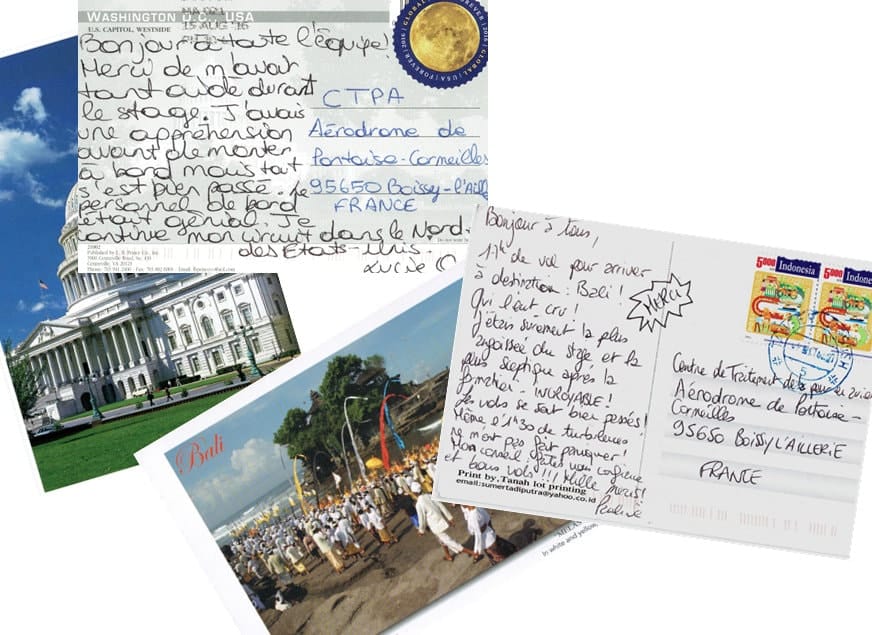 WASHINGTON D.C., USA
U.S. CAPITOL, WESTSIDE
15 AUG '16
GLOBAL | USA | FOREVER | 2016
Bonjour à toute l'équipe!
Merci de m'avoir
tant aidé durant
le stage. J'avais
une appréhension
avant de monter
à bord mais tout
s'est bien passé. Le
personnel de bord
était génial. Je
continue mon circuit dans le Nord
des États-Unis.
Lucie
CTPA
Aérodrome de
Pontoise-Cormeilles
95650 Boissy-l'Aille
FRANCE
Bali
In white and yellow,
Bonjour à tous,
17h de vol pour arriver
à destination : Bali !
Qui l'eut cru !
J'étais surement la plus
angoissée du stage et la
plus sceptique après la
formation : INCROYABLE !
Les vols se sont bien passés!
Même 1h30 de turbulences
ne m'ont pas fait paniquer!
Mon conseil : faites vous confiance
et bons vols !!! Mille mercis!
Pauline
MERCI
Print by, Tanah lot printing
email:sumertadiputra@yahoo.co.id
5000 Indonesia
5000 Indone
Centre de Traitement de la peur en avion
Aérodrome de Pontoise-
Cormeilles
95650 BOISSY L'AILLERIE
FRANCE